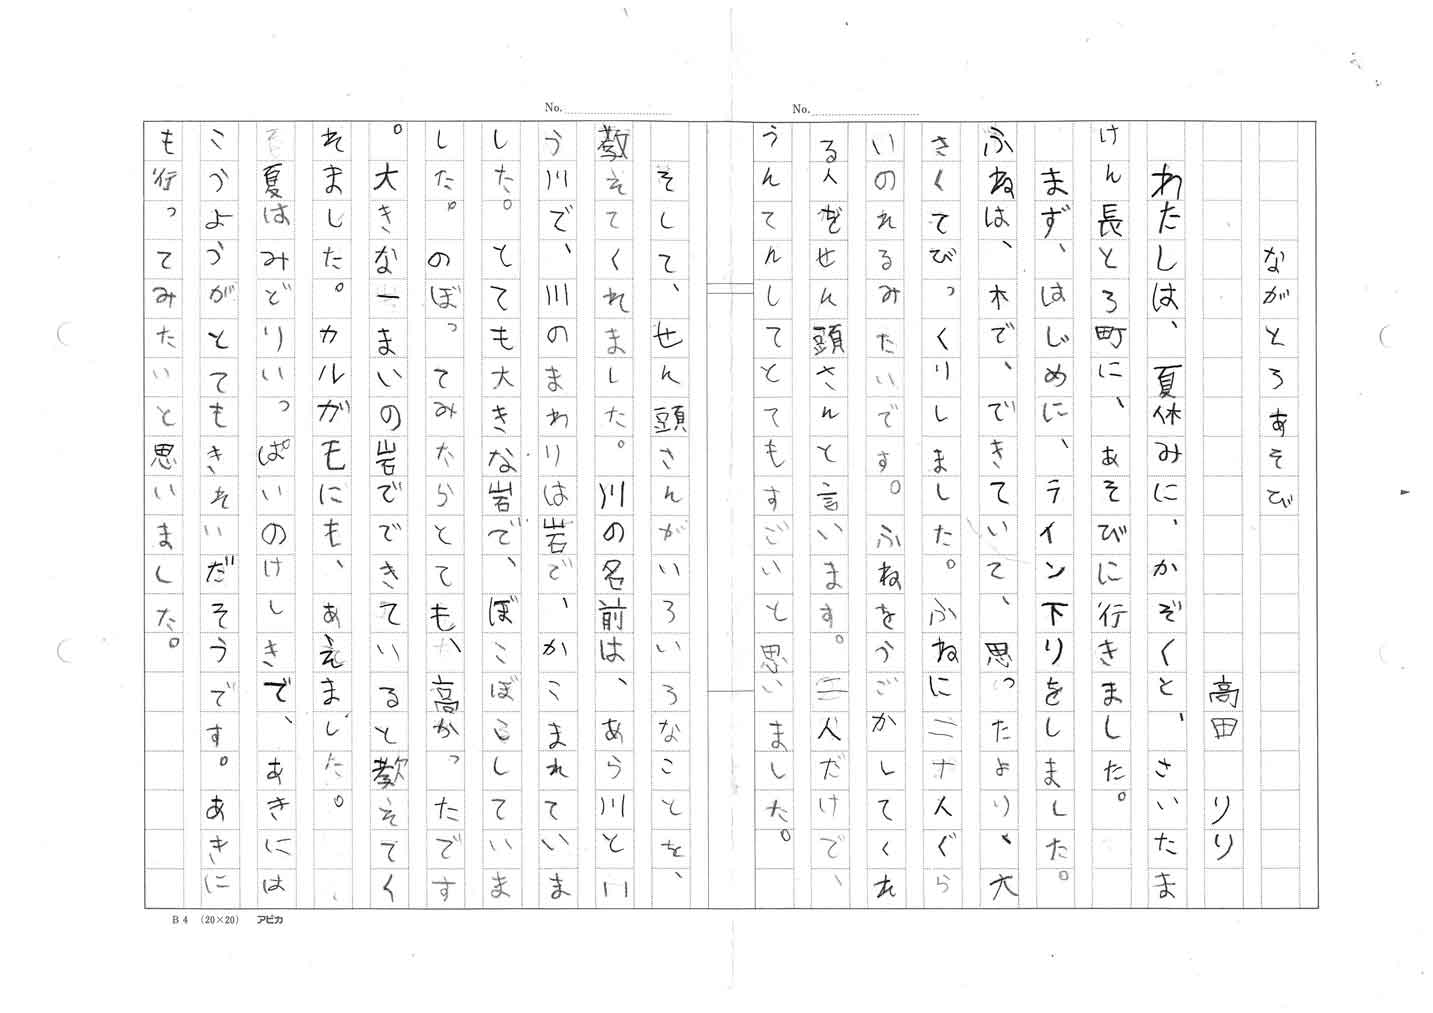 No.
No.
ながとろあそび
高田　りり
わたしは、夏休みに、かぞくと、さいたま
けん長とろ町に、あそびに行きました。
まず、はじめに、ライン下りをしました。
ふねは、木で、できていて、思ったより、大
きくてびっくりしました。ふねに二十人ぐら
いのれるみたいです。ふねをうごかしてくれ
る人をせん頭さんと言います。二人だけで、
うんてんしてとてもすごいと思いました。
そして、せん頭さんがいろいろなことを、
教えてくれました。川の名前は、あら川とい
う川で、川のまわりは岩で、かこまれていま
した。とても大きな岩で、ぼこぼこしていま
した。のぼってみたらとても、高かったです
。大きな一まいの岩でできていると教えてく
れました。カルガモにも、あえました。
夏はみどりいっぱいのけしきで、あきには
こうようがとてもきれいだそうです。あきに
も行ってみたいと思いました。
B4 (20×20) アピカ